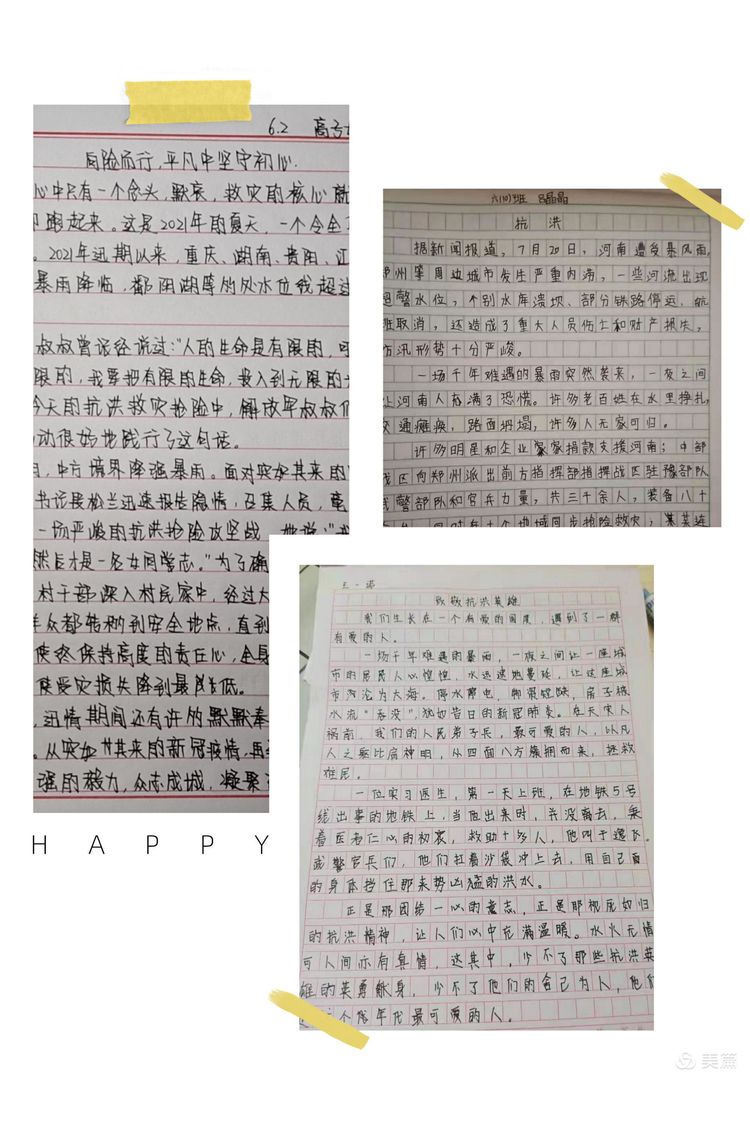 6.2 高子
向险而行,平凡中坚守初心.
心中只有一个念头,默哀,救灾的核心就
跑起来。这是2021年的夏天,一个令全
。2021年汛期以来,重庆、湖南、贵阳、江
暴雨降临,鄱阳湖等多处水位线超过
叔叔曾说经说过:“人的生命是有限的,可
限的,我要把有限的生命,投入到无限的
今天的抗洪救灾抢险中,解放军叔叔们
动很好地践行了这句话。
日,中方境界降强暴雨。面对突如其来的
书记段松兰迅速报告险情,召集人员,
一场严峻的抗洪抢险攻坚战。她说“我
然后才是一名女同志。”为了确
村干部深入村民家中,经过大
群众都转移到安全地点,直到
使终保持高度的责任心,全身
使受灾损失降到最低。
汛情期间还有许多默默奉
。从突如其来的新冠疫情,再
强的毅力,众志成城,凝聚
六(10)班 吕晶晶
抗洪
据新闻报道,7月20日,河南遭受暴风雨,
郑州肇周边城市发生严重内涝,一些河流出现
超警水位,个别水库溃坝、部分铁路停运,航
班取消,还造成了重大人员伤亡和财产损失,
防汛形势十分严峻。
一场千年难遇的暴雨突然袭来,一夜之间
让河南人充满了恐慌。许多老百姓在水里挣扎,
交通瘫痪,路面坍塌,许多人无家可归。
许多明星和企业家捐款支援河南;中部
战区向郑州派出前方指挥部指挥战区驻豫部队
武警部队和官兵力量,共三千余人,装备八十
同时在十个地域同步抢险救灾;某某连
王一诺
致敬抗洪英雄
我们生长在一个有爱的国度,遇到了一群
有爱的人。
一场千年难遇的暴雨,一夜之间让一座城
市的居民人心惶惶,水迅速地蔓延,让这座城
市沉沦为大海。停水停电,脚下踉跄,房子被
水流“吞没”,犹如昔日的新冠肺炎。在天灾人
祸前,我们的人民弟子兵,最可爱的人,以凡
人之躯比肩神明,从四面八方簇拥而来,拯救
难民。
一位实习医生,第一天上班,在地铁5号
线出事的地铁上,当他出来时,并没离去,秉
着医者仁心的初衷,救助十多人,他叫于逸飞。
武警官兵们,他们扛着沙袋冲上去,用自己
的身体挡住那来势凶猛的洪水。
正是那团结一心的意志,正是那视死如归
的抗洪精神,让人们心中充满温暖。水火无情
可人间亦有真情,这其中,少不了那些抗洪英
雄的英勇献身,少不了他们的舍己为人,他们
是这个俗年代最可爱的人。
HAPPY
美篇